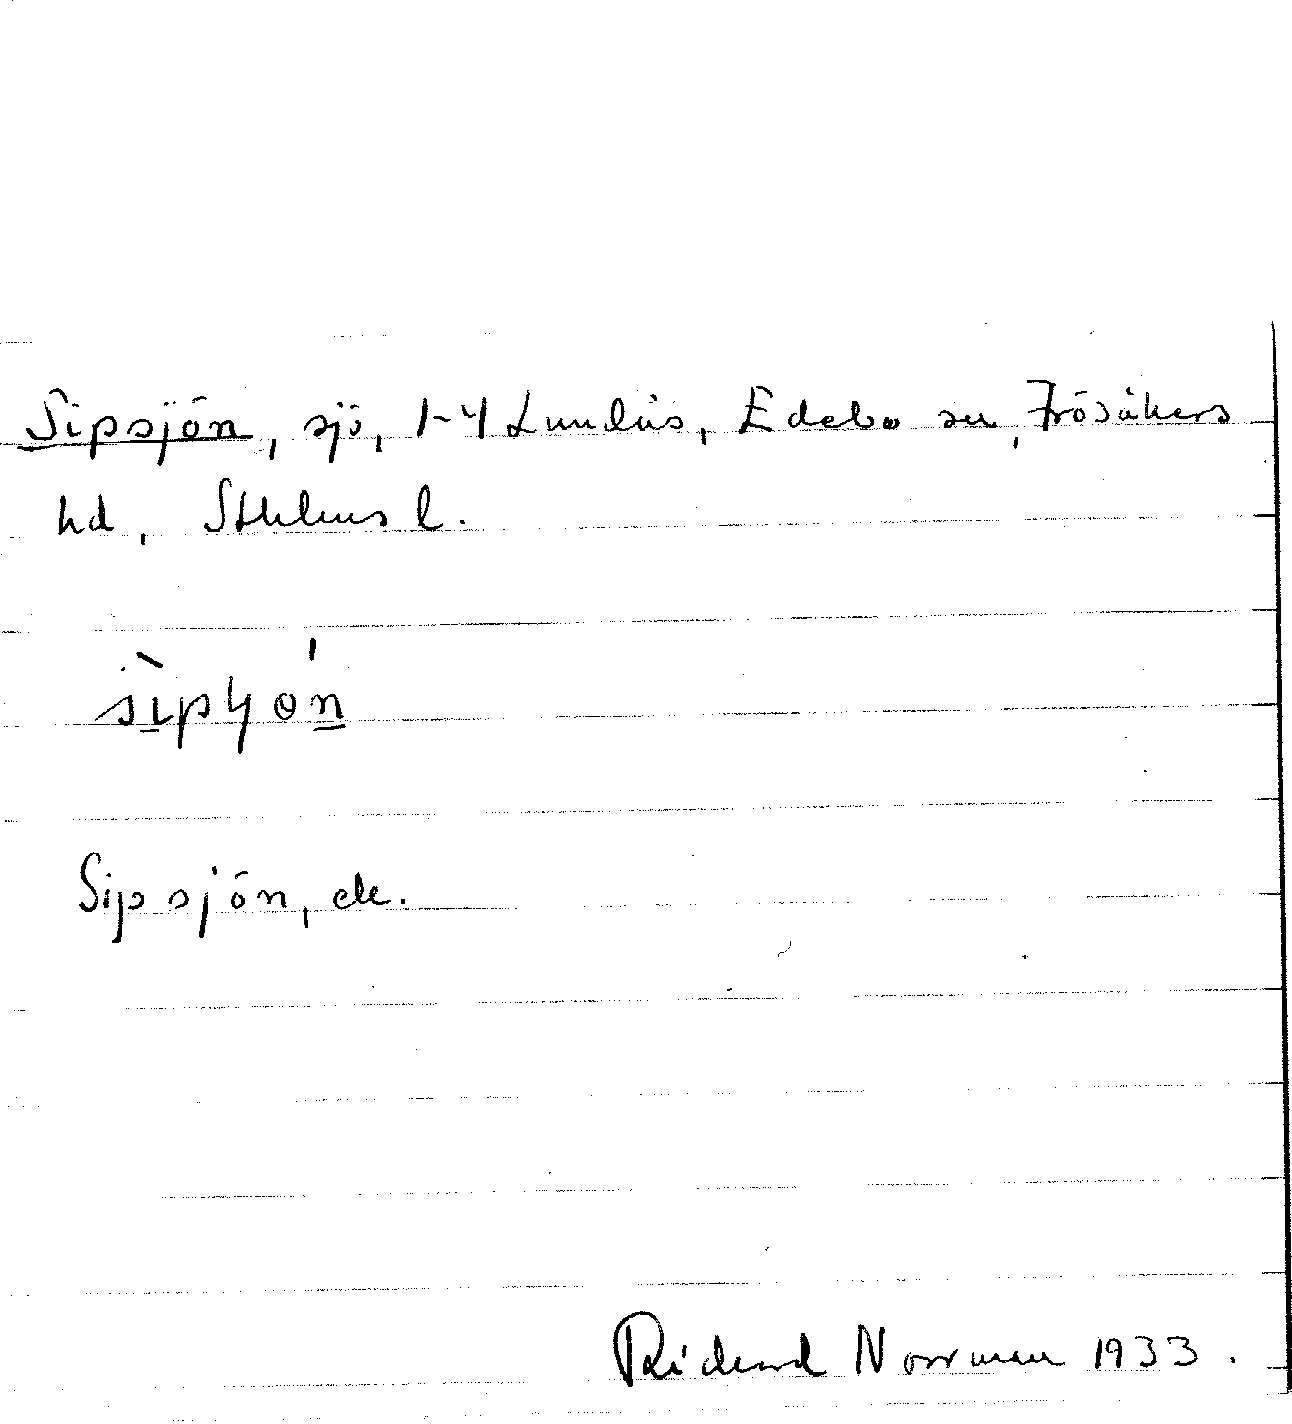 Sipsjön, sjö, 1-4 Lundås, Edebo sn, Frösåkers
hd, Sthlms l.
Sipsjön, ek.
Rickard Norrman 1933.